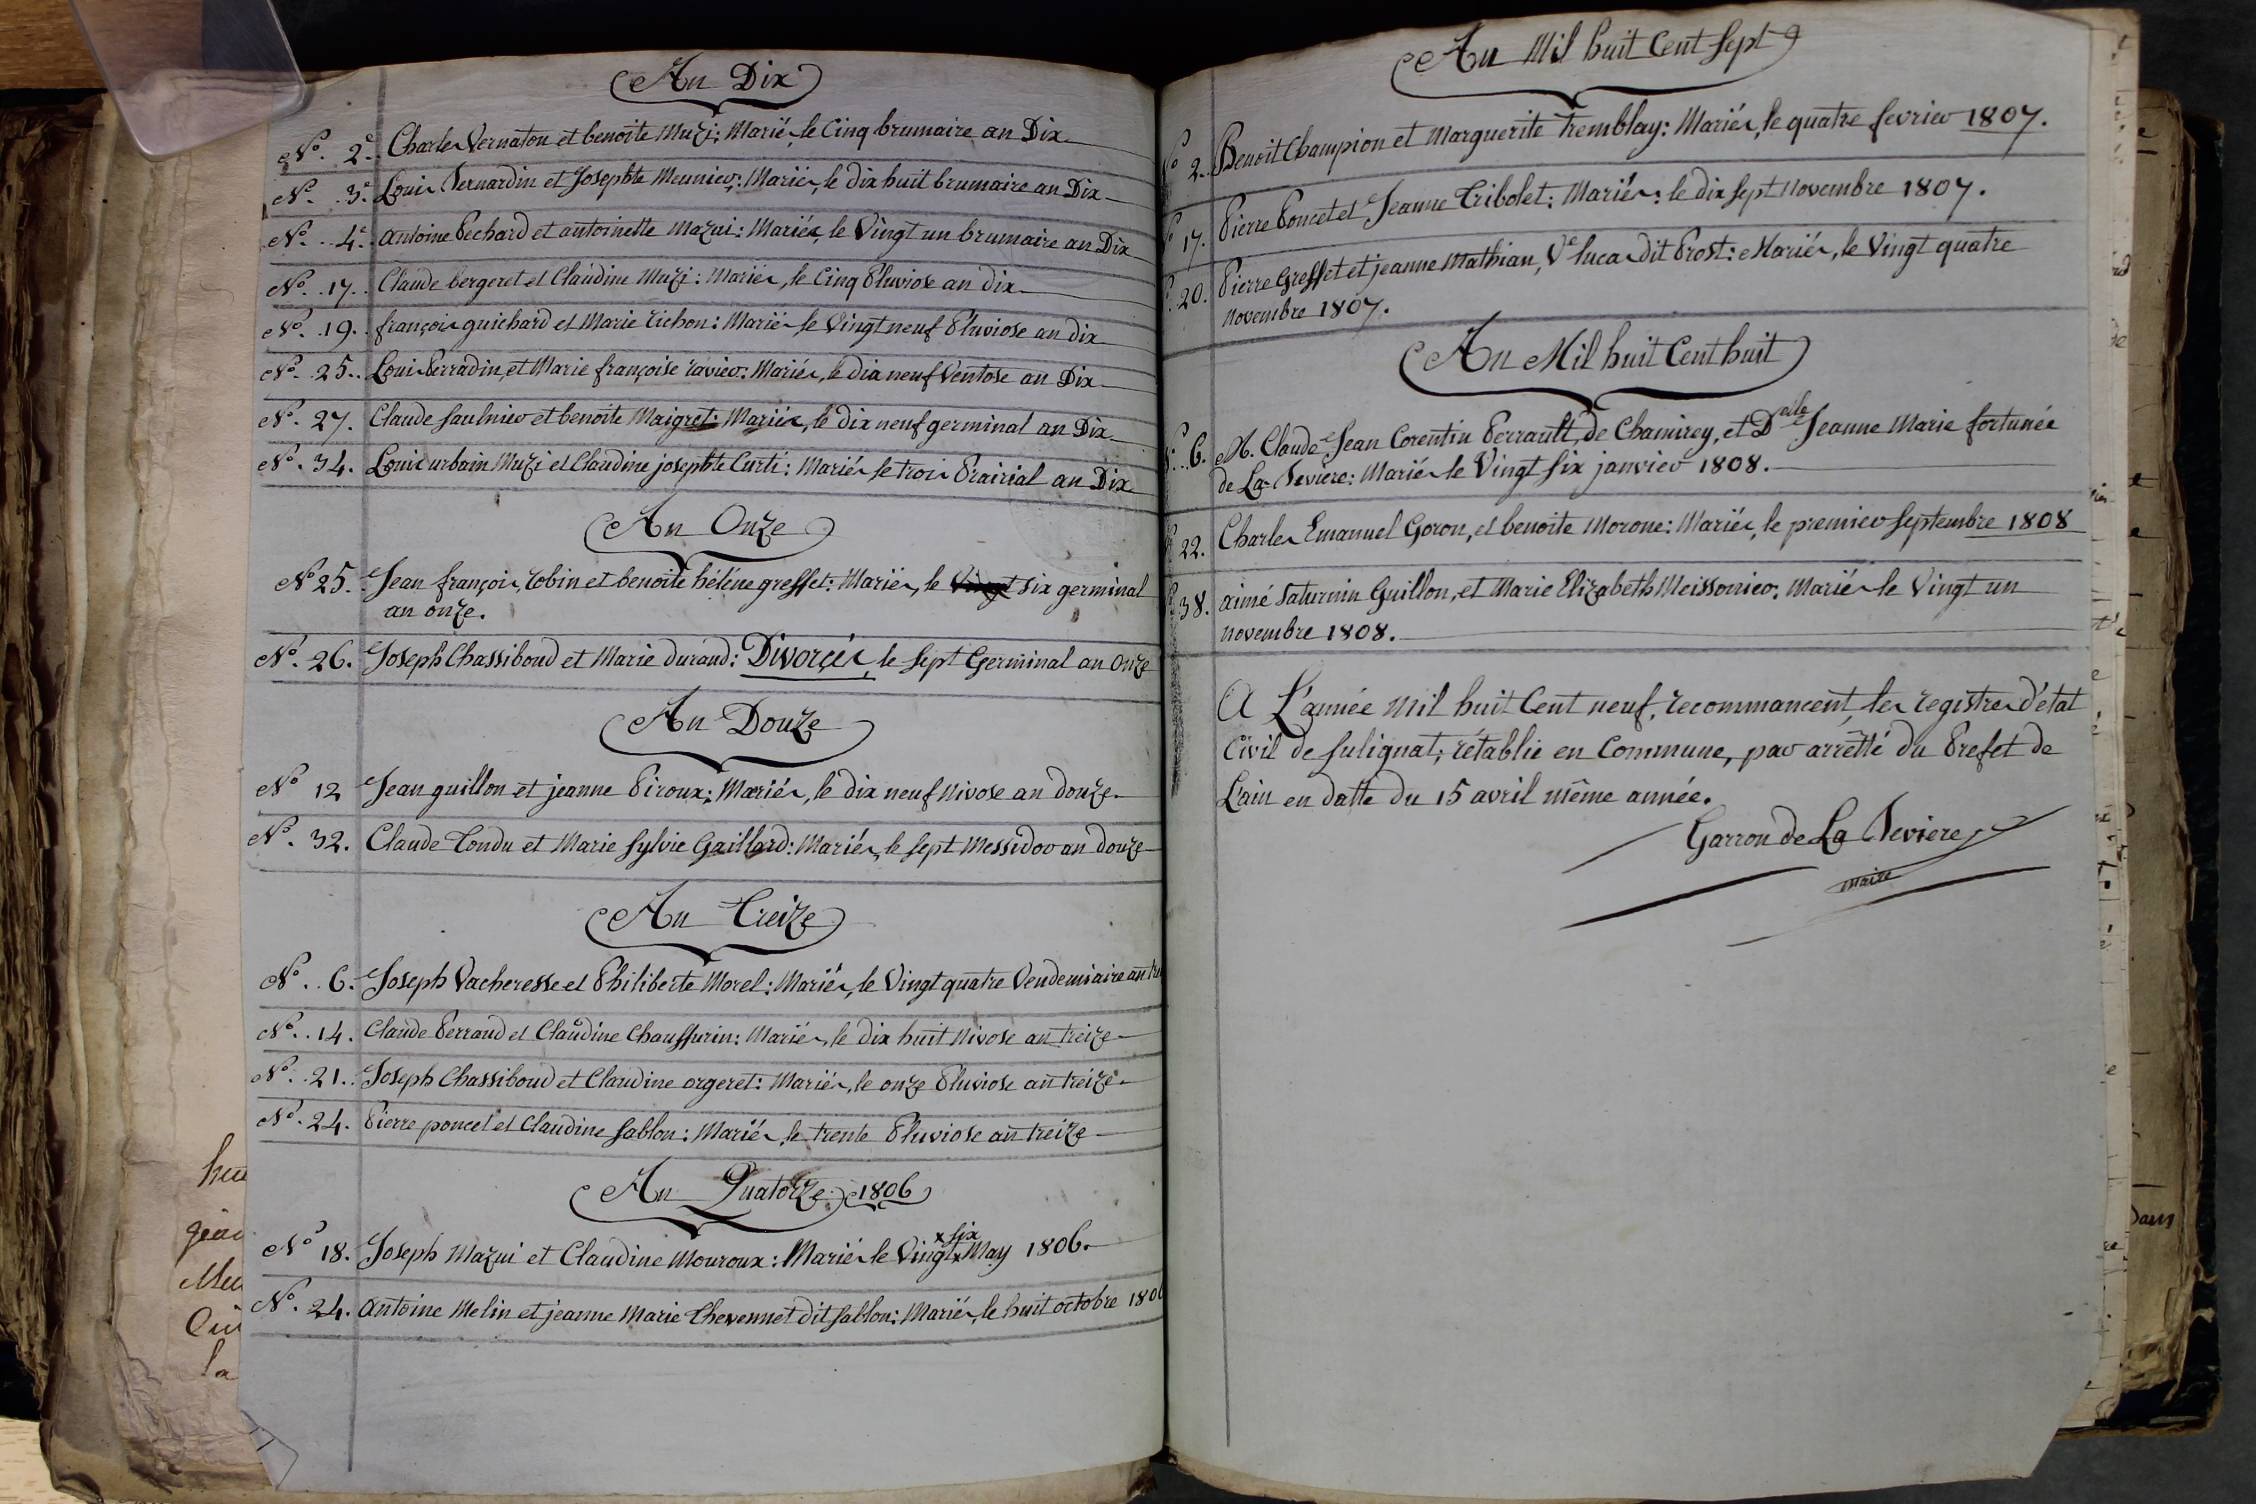 An Dix
N.º 2.e Charles Vernaton et benoite Muzi: Mariés, le Cinq brumaire an Dix
N.º 3.e Louis Bernardin et Josephte Meunier: Mariés, le dix huit brumaire an Dix
N.º 4.e antoine Pechard et antoinette Mazui: Mariés, le Vingt un brumaire an Dix
N.º 17. Claude bergeret et Claudine Muzi: Mariés, le Cinq Pluviose an dix
N.º 19. françois guichard et Marie Tichon: Mariés le Vingt neuf Pluviose an dix
N.º 25. Louis Perradin, et Marie françoise ravier: Mariés, le dix neuf Ventose an Dix
N.º 27. Claude Saulnier et benoite Maigret: Mariés, le dix neuf germinal an Dix
N.º 34. Louis urbain Muzi et Claudine josephte Curti: Mariés le trois Prairial an Dix
An Onze
N.º 25. Jean françois robin et benoite héléne greffet: Mariés, le six germinal
an onze.
N.º 26. Joseph Chassiboud et Marie durand: Divorçés, le sept Germinal an Onze
An Douze
N.º 12 Jean guillon et jeanne Piroux: Mariés, le dix neuf Nivose an douze.
N.º 32. Claude Tondu et Marie Sylvie Gaillard: Mariés, le sept Messidor an douze
An Treize
N.º 6. Joseph Vacheresse et Philiberte Morel: Mariés, le Vingt quatre Vendemiaire an
N.º 14. Claude Perraud et Claudine Chauffurin: Mariés, le dix huit Nivose an treize
N.º 21. Joseph Chassiboud et Claudine orgeret: Mariés, le onze Pluviose an treize
N.º 24. Pierre poncet et Claudine Sablon: Mariés, le trente Pluviose an treize
An Quatorze: 1806
x six
N.º 18. Joseph Mazui et Claudine Mouroux: Mariés le Vingt x May 1806.
N.º 24. antoine Melin et jeanne Marie Chevennet dit Sablon: Mariés, le huit octobre 1806
An Mil huit Cent Sept
Nº 2. Benoit Champion et Marguerite Tremblay: Mariés, le quatre fevrier 1807.
Nº 17. Pierre Poncet et Jeanne Tribolet: Mariés: le dix sept Novembre 1807.
Nº 20. Pierre Greffet et jeanne Mathian, Ve lucas dit Prost: Mariés, le Vingt quatre
Novembre 1807.
An Mil huit Cent huit
Nº 6. M. Claude Jean Corentin Perrault, de Chamirey, et Delle Jeanne Marie fortunée
de La Beviere: Mariés le Vingt six janvier 1808.
Nº 22. Charles Emanuel Goron, et benoite Morone: Mariés, le premier septembre 1808
Nº 38. aimé Saturnin Guillon, et Marie Elizabeth Meissonier: Mariés le Vingt un
Novembre 1808.
A L'année Mil huit Cent neuf, recommancent, les registres d'état
Civil de Sulignat, rétablie en Commune, par arrêtté du Prefet de
L'ain en datte du 15 avril même année.
Garron de La Beviere
maire